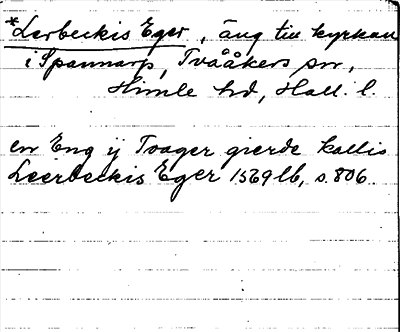 *Lerbeckis Eger, äng till kyrkan
i Spannarp, Tvååkers sn,
Himle hd, Hall. l.
en Eng ij Tvager gierde kallis
Leerbeckis Eger 1569 lb, s. 806.